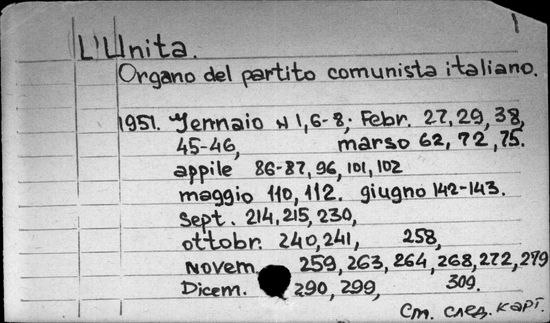 L'Unita.
Organo del partito comunista italiano.
1951. Jennaio N 1,6-8; Febr. 27,29,38,
45-46, marso 62, 72, 75.
appile 86-87, 96, 101, 102
maggio 110, 112. giugno 142-143.
sept. 214, 215, 230,
ottobr. 240, 241, 258,
Novem. 259, 263, 264, 268, 272, 279
Dicem. 290, 299, 309.
См. след. карт.